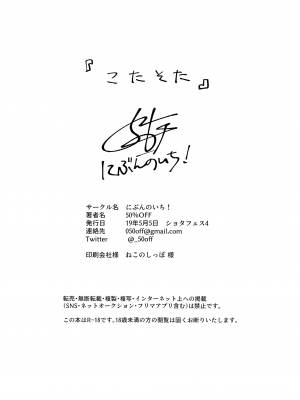 『こたそた』
にぶんのいち！
サークル名 にぶんのいち！
著者名 50%OFF
発行日 19年5月5日 ショタフェス4
連絡先 050off@gmail.com
Twitter @_50off
印刷会社様 ねこのしっぽ 様
転売・無断転載・複製・複写・インターネット上への掲載
(SNS・ネットオークション・フリマアプリ含む)は禁止です。
この本はR-18です。18歳未満の方の閲覧は固くお断りいたします。